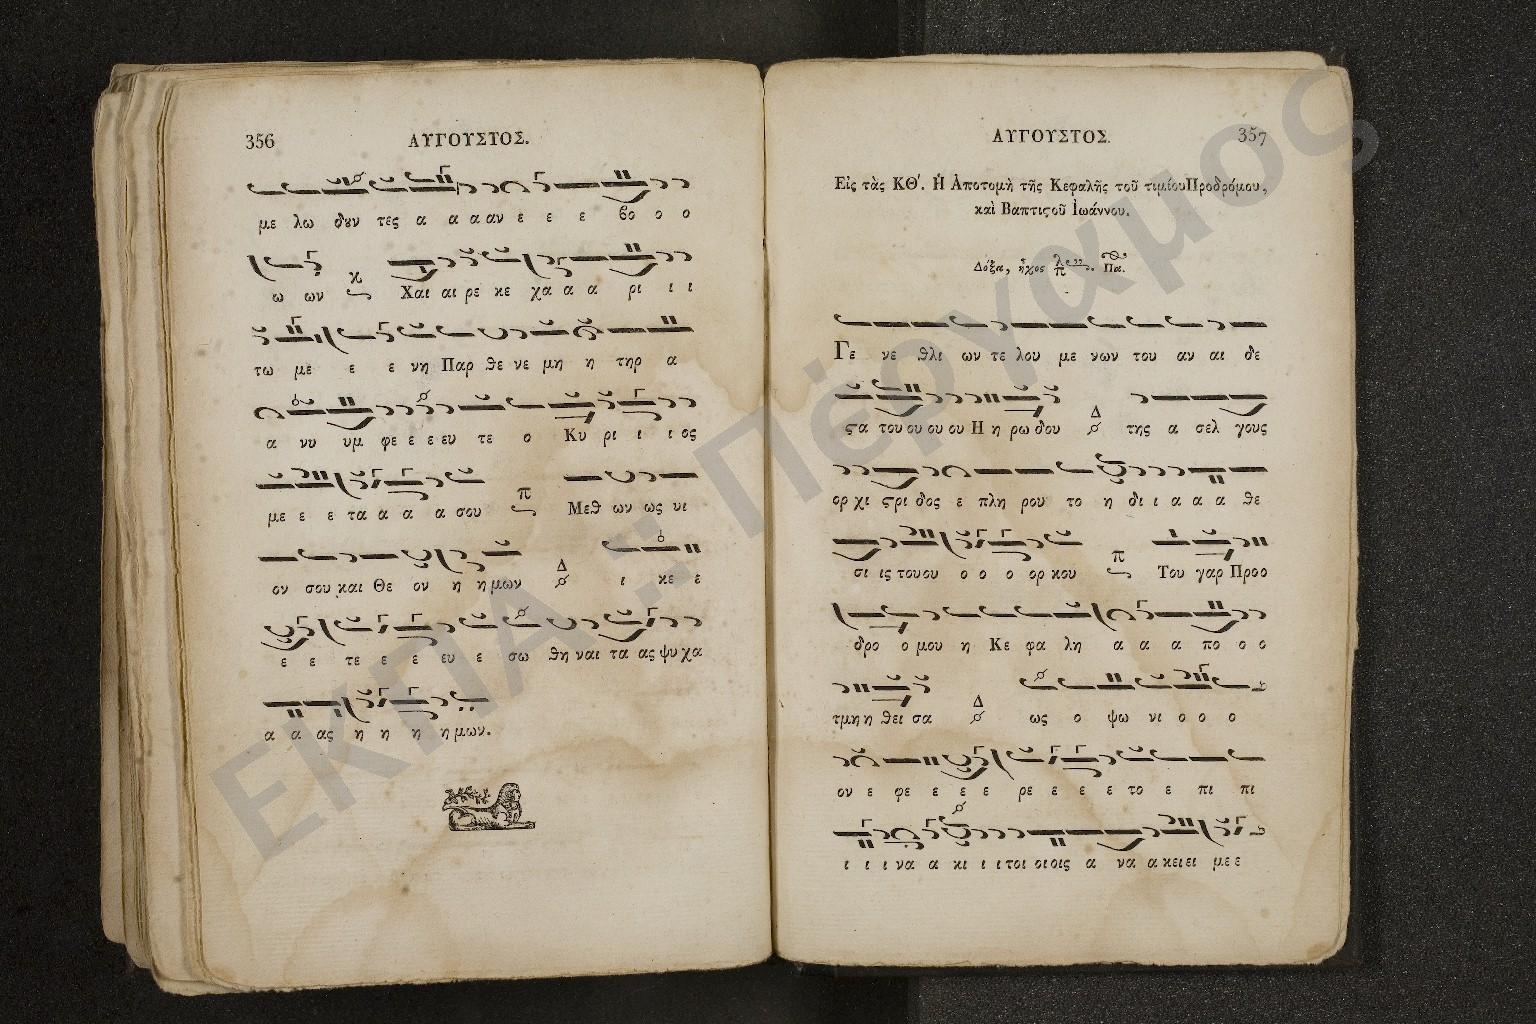 356 ΑΥΓΟΥΣΤΟΣ.
με λω δȣν τες α α α αν ε ε ε βο ο ο
ω ων Χαι αι ρε κε χα α α α ρι ι ι
τω με ε ε νη Παρ θε νε μη η τηρ α
α νυ υμ φε ε ε ευ τε ο Κυ ρι ι ι ος
με ε ε τα α α α σου π Μεθ ων ως υι
ον σου και Θε ον η η μων Δ ι κε ε
ε ε τε ε ε ευ ε σω θη ναι τα ας ψυ χα
α α ας η η η η μων.
ΑΥΓΟΥΣΤΟΣ. 357
Εἰς τὰς ΚΘ'. Ἡ Ἀποτομὴ τῆς Κεφαλῆς τοῦ τιμίου Προδρόμου,
καὶ Βαπτιϛοῦ Ἰωάννου.
Δόξα, ἦχος λ π Πα.
Γε νε θλι ων τε λου με νων του αν αι δε
ϛα του ου ου ου Η η ρω δου Δ της α σελ γους
ορ χι ϛρι δος ε πλη ρου το η δι ι α α α θε
σι ις του ου ο ο ο ορ κου π Του γαρ Προο
δρο ο μου η Κε φα λη α α α πο ο ο
τμη η θει σα Δ ως ο ψω νι ο ο ο
ον ε φε ε ε ε ρε ε ε ε το ε πι πι
ι ι ι να α κι ι ι τοι οι οις α να α κει ει με ε
ΕΚΠΑ :: Πέργαμος